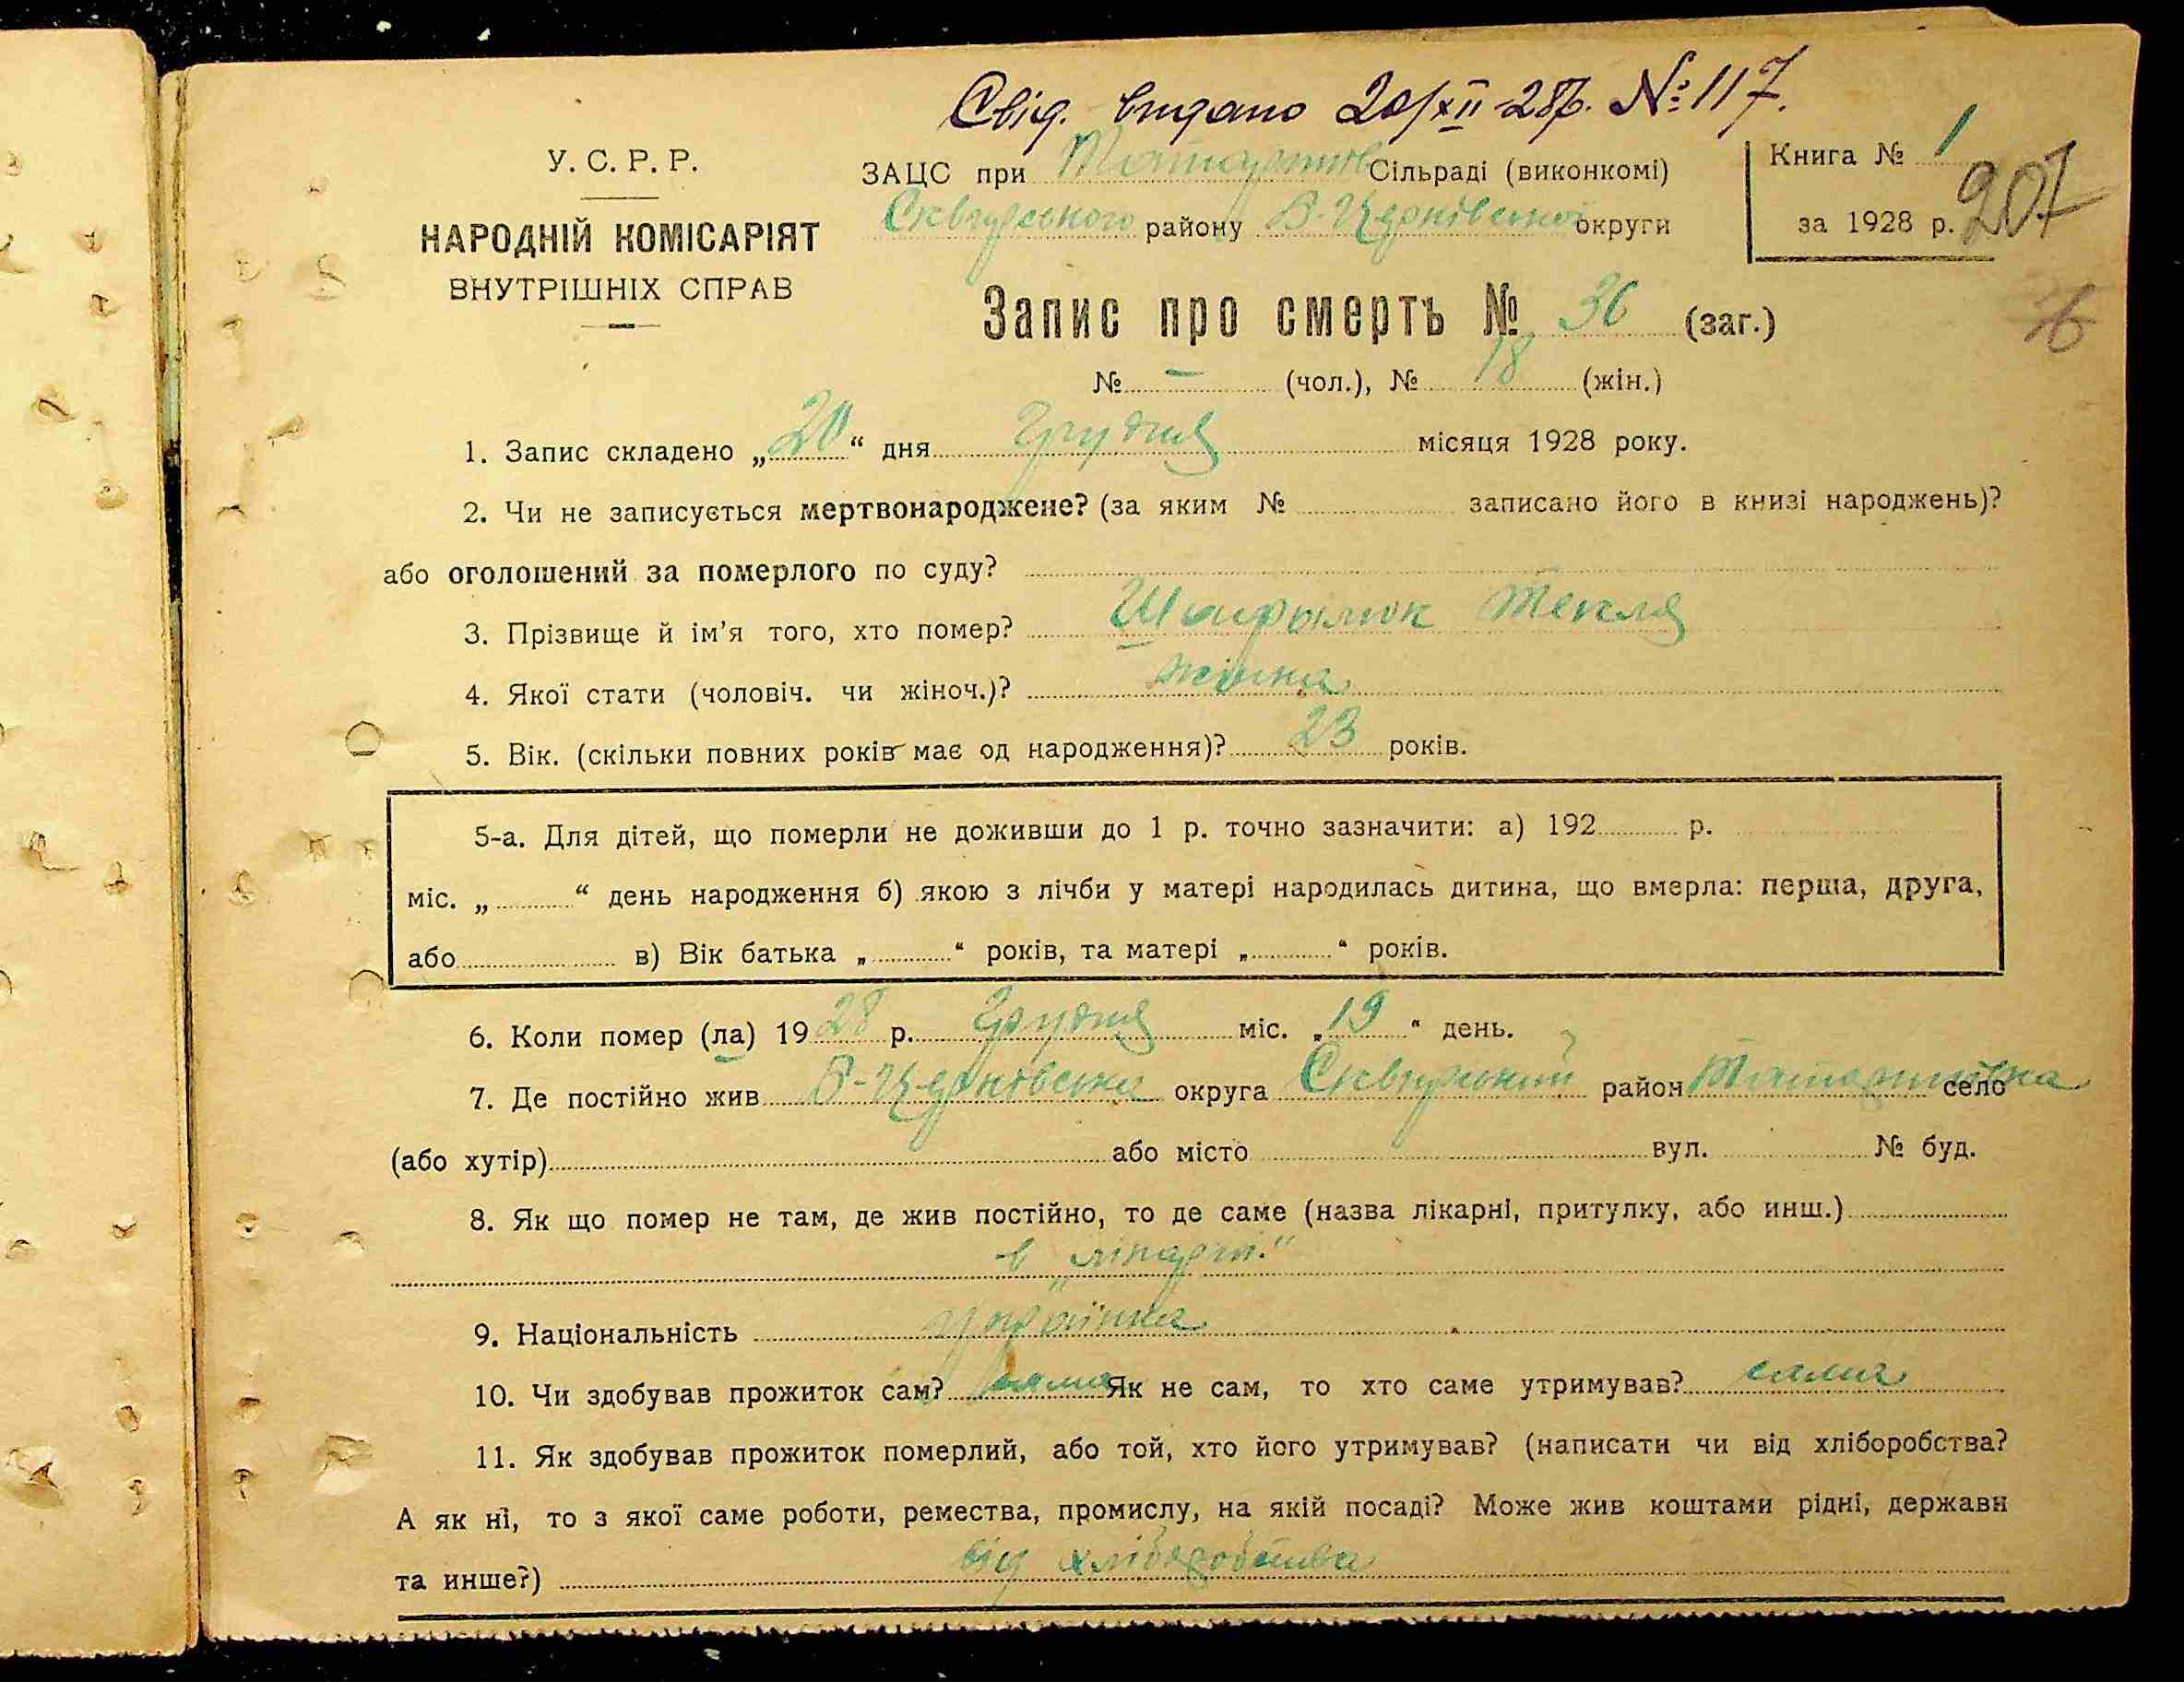 Свід. видано 20/XII-28р. №117.
У. С. Р. Р.
НАРОДНІЙ КОМІСАРІЯТ
ВНУТРІШНІХ СПРАВ
ЗАЦС при Сільраді (виконкомі)
Сквирського району Б-Церківської округи
Книга № 1
за 1928 р. 207
Запис про смерть № 36 (заг.)
№ — (чол.), № 18 (жін.)
1. Запис складено „20“ дня Грудня місяця 1928 року.
2. Чи не записується мертвонароджене? (за яким № записано його в книзі народжень)?
або оголошений за померлого по суду?
3. Прізвище й ім’я того, хто помер? Текля
4. Якої стати (чоловіч. чи жіноч.)? жінка
5. Вік. (скільки повних років має од народження)? 23 років.
5-а. Для дітей, що померли не доживши до 1 р. точно зазначити: а) 192 р.
міс. „ “ день народження б) якою з лічби у матері народилась дитина, що вмерла: перша, друга,
або в) Вік батька „ “ років, та матері „ “ років.
6. Коли помер (ла) 1928 р. Грудня міс. „19“ день.
7. Де постійно жив Б-Церківська округа Сквирський район село
(або хутір) або місто вул. № буд.
8. Як що помер не там, де жив постійно, то де саме (назва лікарні, притулку, або инш.)
в
9. Національність українка
10. Чи здобував прожиток сам? сама Як не сам, то хто саме утримував? сама
11. Як здобував прожиток померлий, або той, хто його утримував? (написати чи від хліборобства?
А як ні, то з якої саме роботи, ремества, промислу, на якій посаді? Може жив коштами рідні, держави
та инше?) від хліборобства